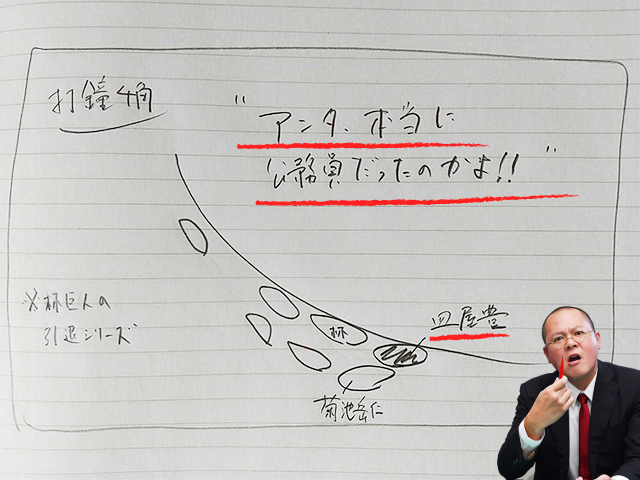 打鐘4角
"アンタ、本当に
公務員だったのかよ!!"
※林巨人の
引退シリーズ
林
皿屋豊
菊池岳仁